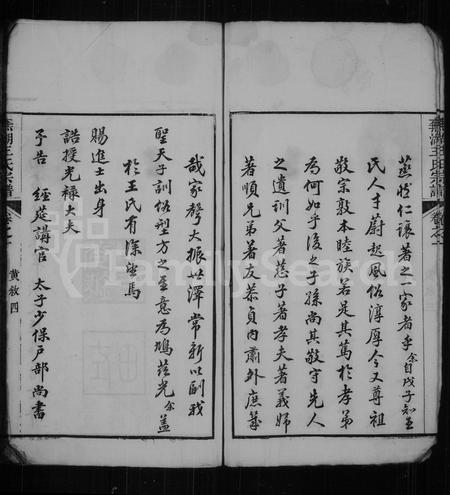 蕪湖王氏宗譜
卷之一
蒸於仁讓著之一家者乎余自戊子知〿
民人才蔚起風俗淳厚今又尊祖
敬宗敦本睦族若是其篤於孝弟
為何如乎後之子孫尚其敬守先人
之遺訓父著慈子著孝夫著義婦
著順兄弟著友恭貞內肅外庶幾
哉家聲大振世澤常新以副我
聖天子訓俗型方之至意為鳩茲光余蓋
於王氏有深望焉
賜進士出身
誥授光祿大夫
予告 經筵講官 太子少保戶部尚書
黃敘 四
蕪湖王氏宗譜
卷之一
FamilySearch